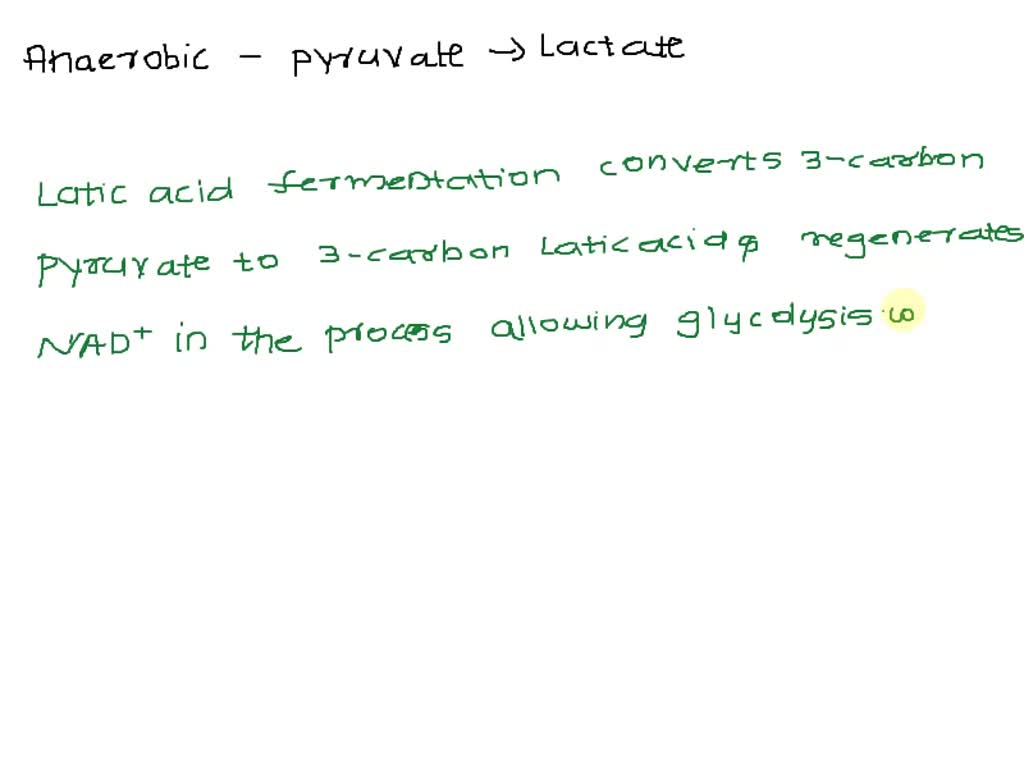 Anaerobic - pyruvate → Lactate
Latic acid fermentation converts 3-carbon
pyruvate to 3-carbon Latic acid & regenerates
NAD+ in the process allowing glycolysis